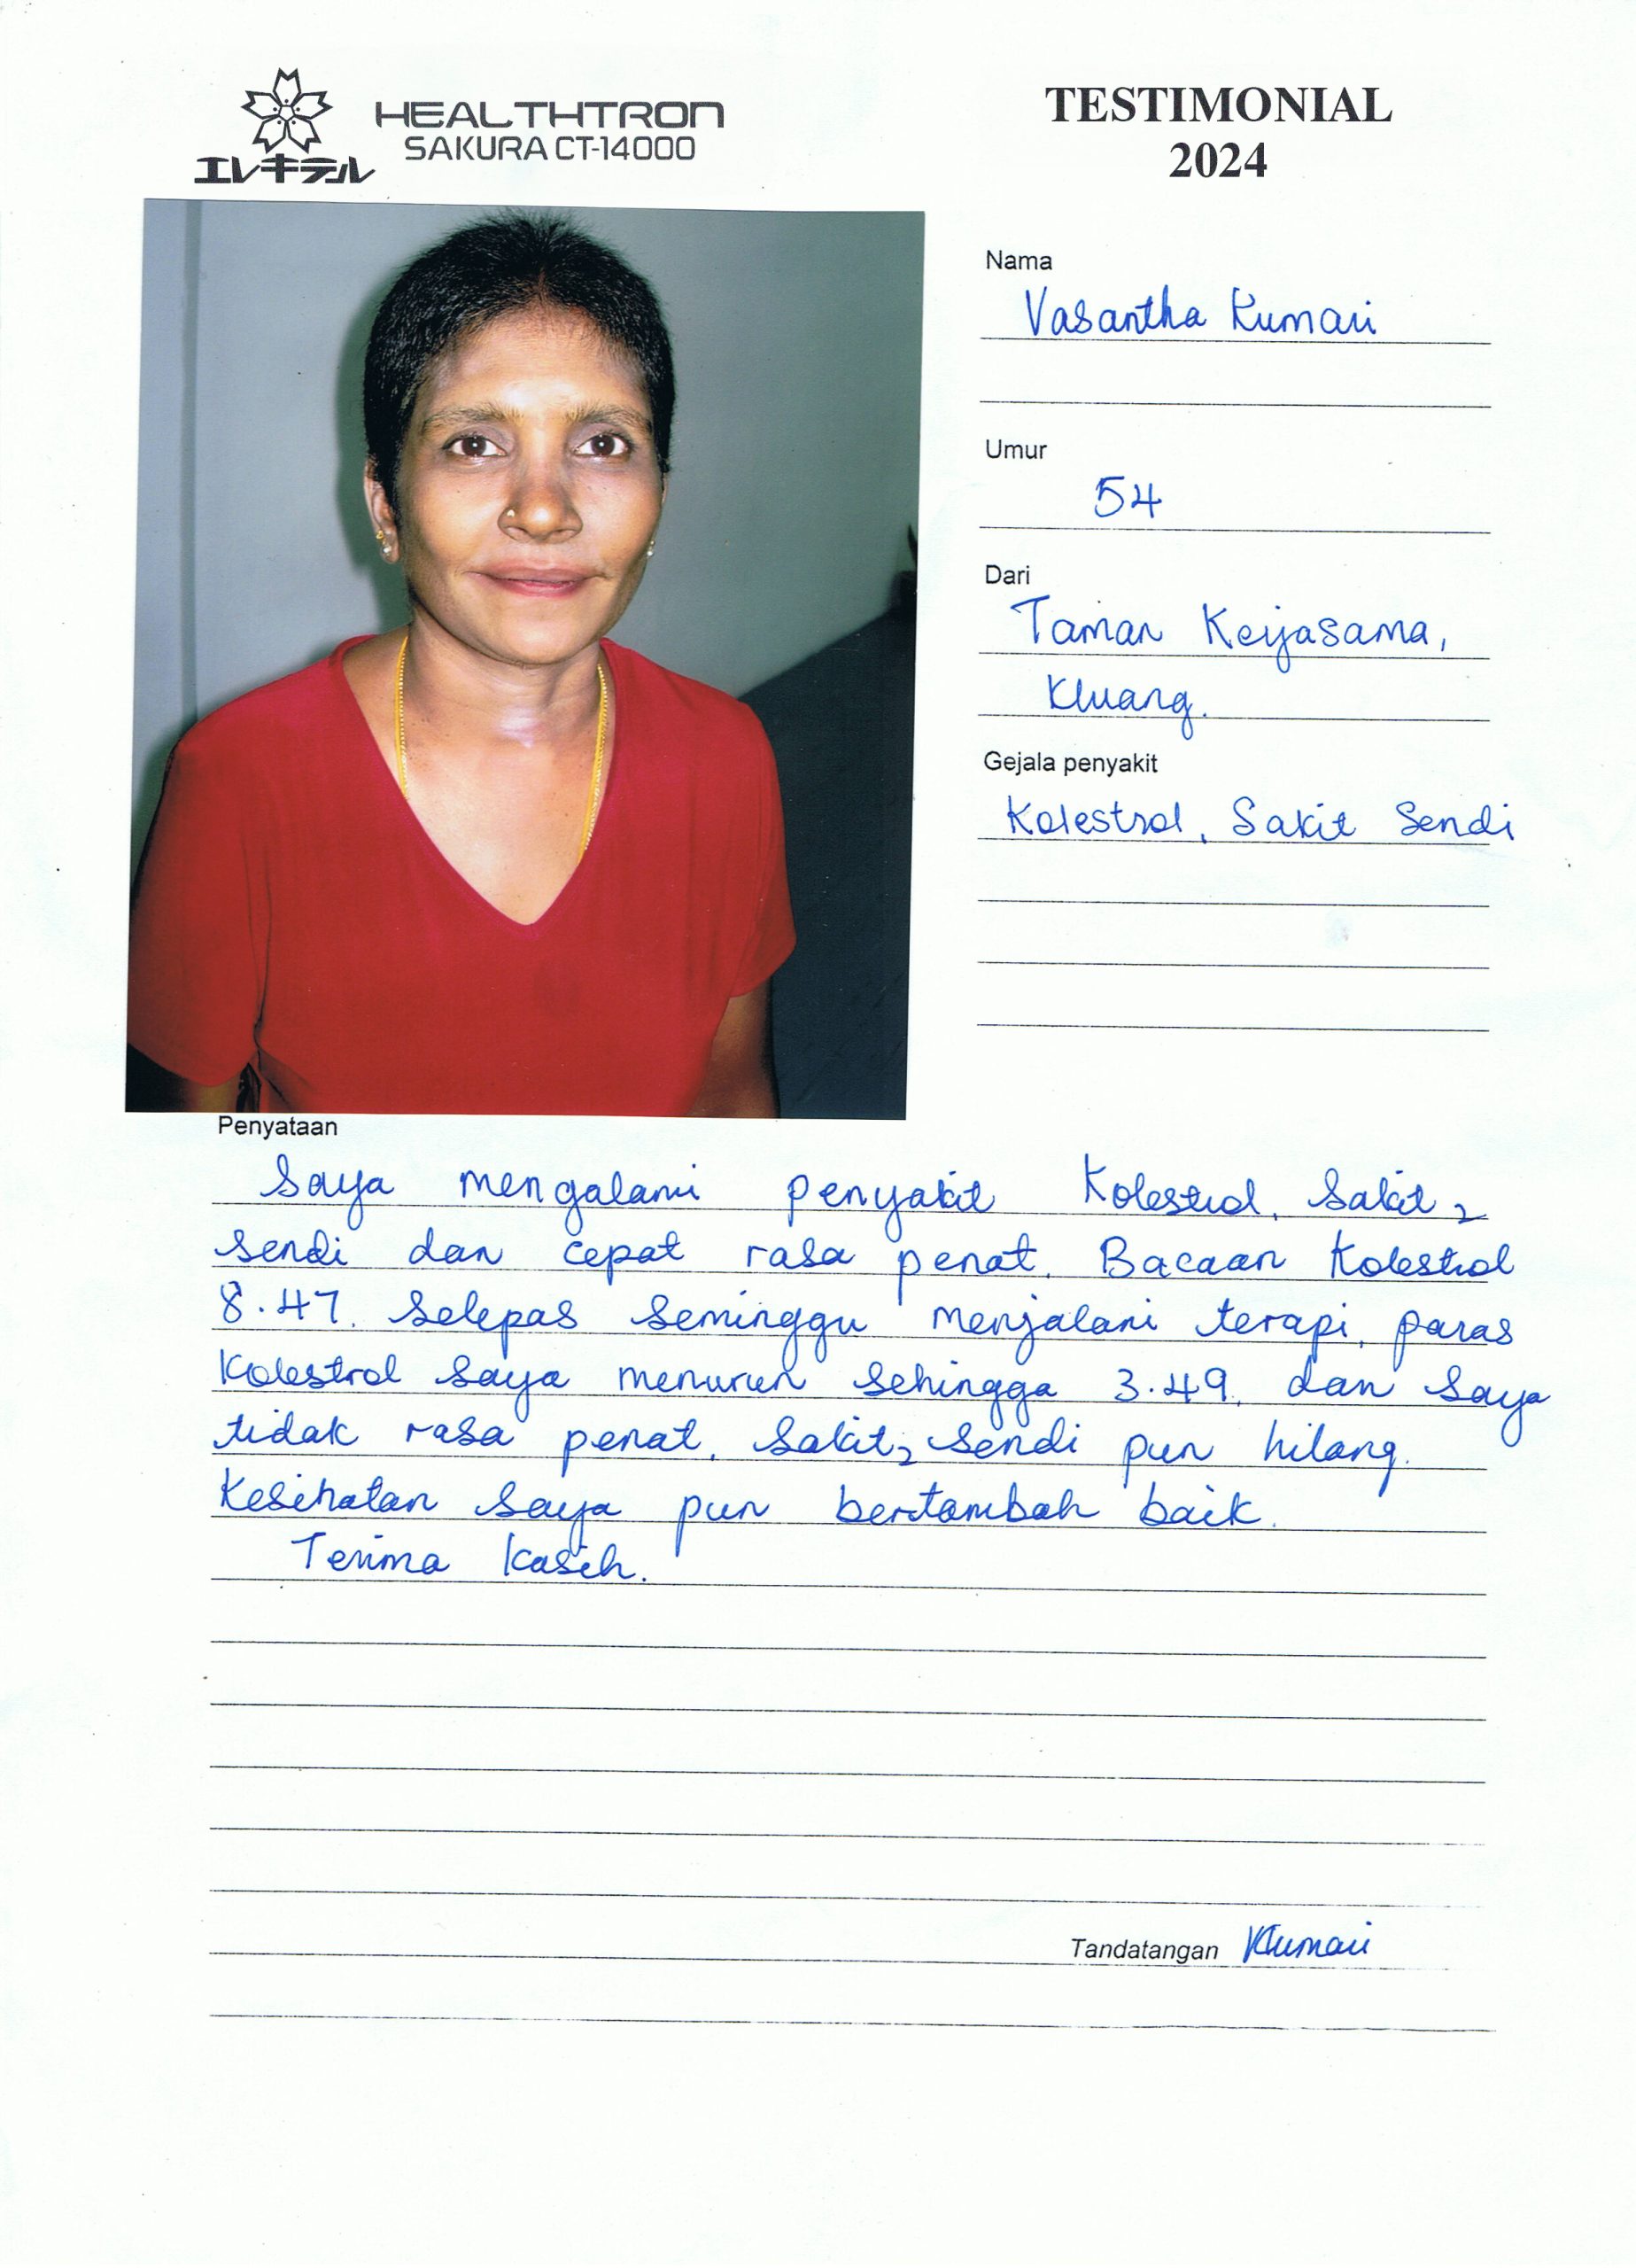 エレキテル
HEALTHTRON
SAKURA CT-14000
TESTIMONIAL
2024
Nama
Vasantha Kumari
Umur
54
Dari
Taman Kerjasama,
Kluang.
Gejala penyakit
Kolestrol, Sakit Sendi
Penyataan
Saya mengalami penyakit Kolestrol, Sakit2
Sendi dan cepat rasa penat. Bacaan Kolestrol
8.47. Selepas Seminggu menjalani terapi, paras
Kolestrol Saya menurun Sehingga 3.49, dan Saya
tidak rasa penat, Sakit2 Sendi pun hilang.
Kesihatan Saya pun bertambah baik.
Terima Kasih.
Tandatangan Kumari